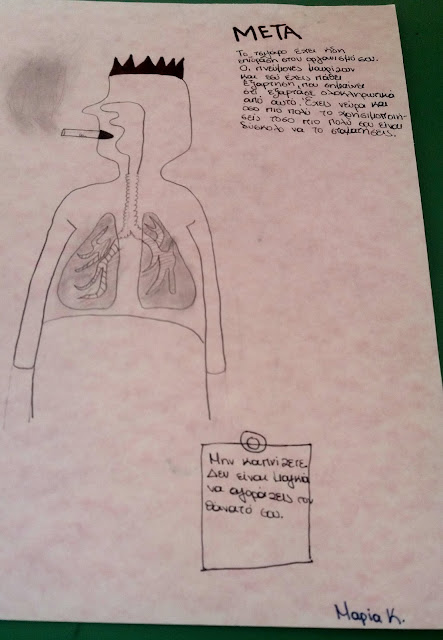 ΜΕΤΑ
Το τσιγάρο έχει ήδη
επίδραση στον οργανισμό σου.
Οι πνεύμονες μαυρίζουν
και εσύ έχεις πάθει
εξάρτηση, που σημαίνει
ότι εξαρτάσαι ολοκληρωτικά
από αυτό. Έχεις νεύρα και
όσο πιο πολύ το χρησιμοποιή-
σεις τόσο πιο πολύ σου είναι
δύσκολο να το σταματήσεις.
Μην καπνίζετε.
Δεν είναι μαγκιά
να αγοράζεις τον
θάνατό σου.
Μαρία Κ.